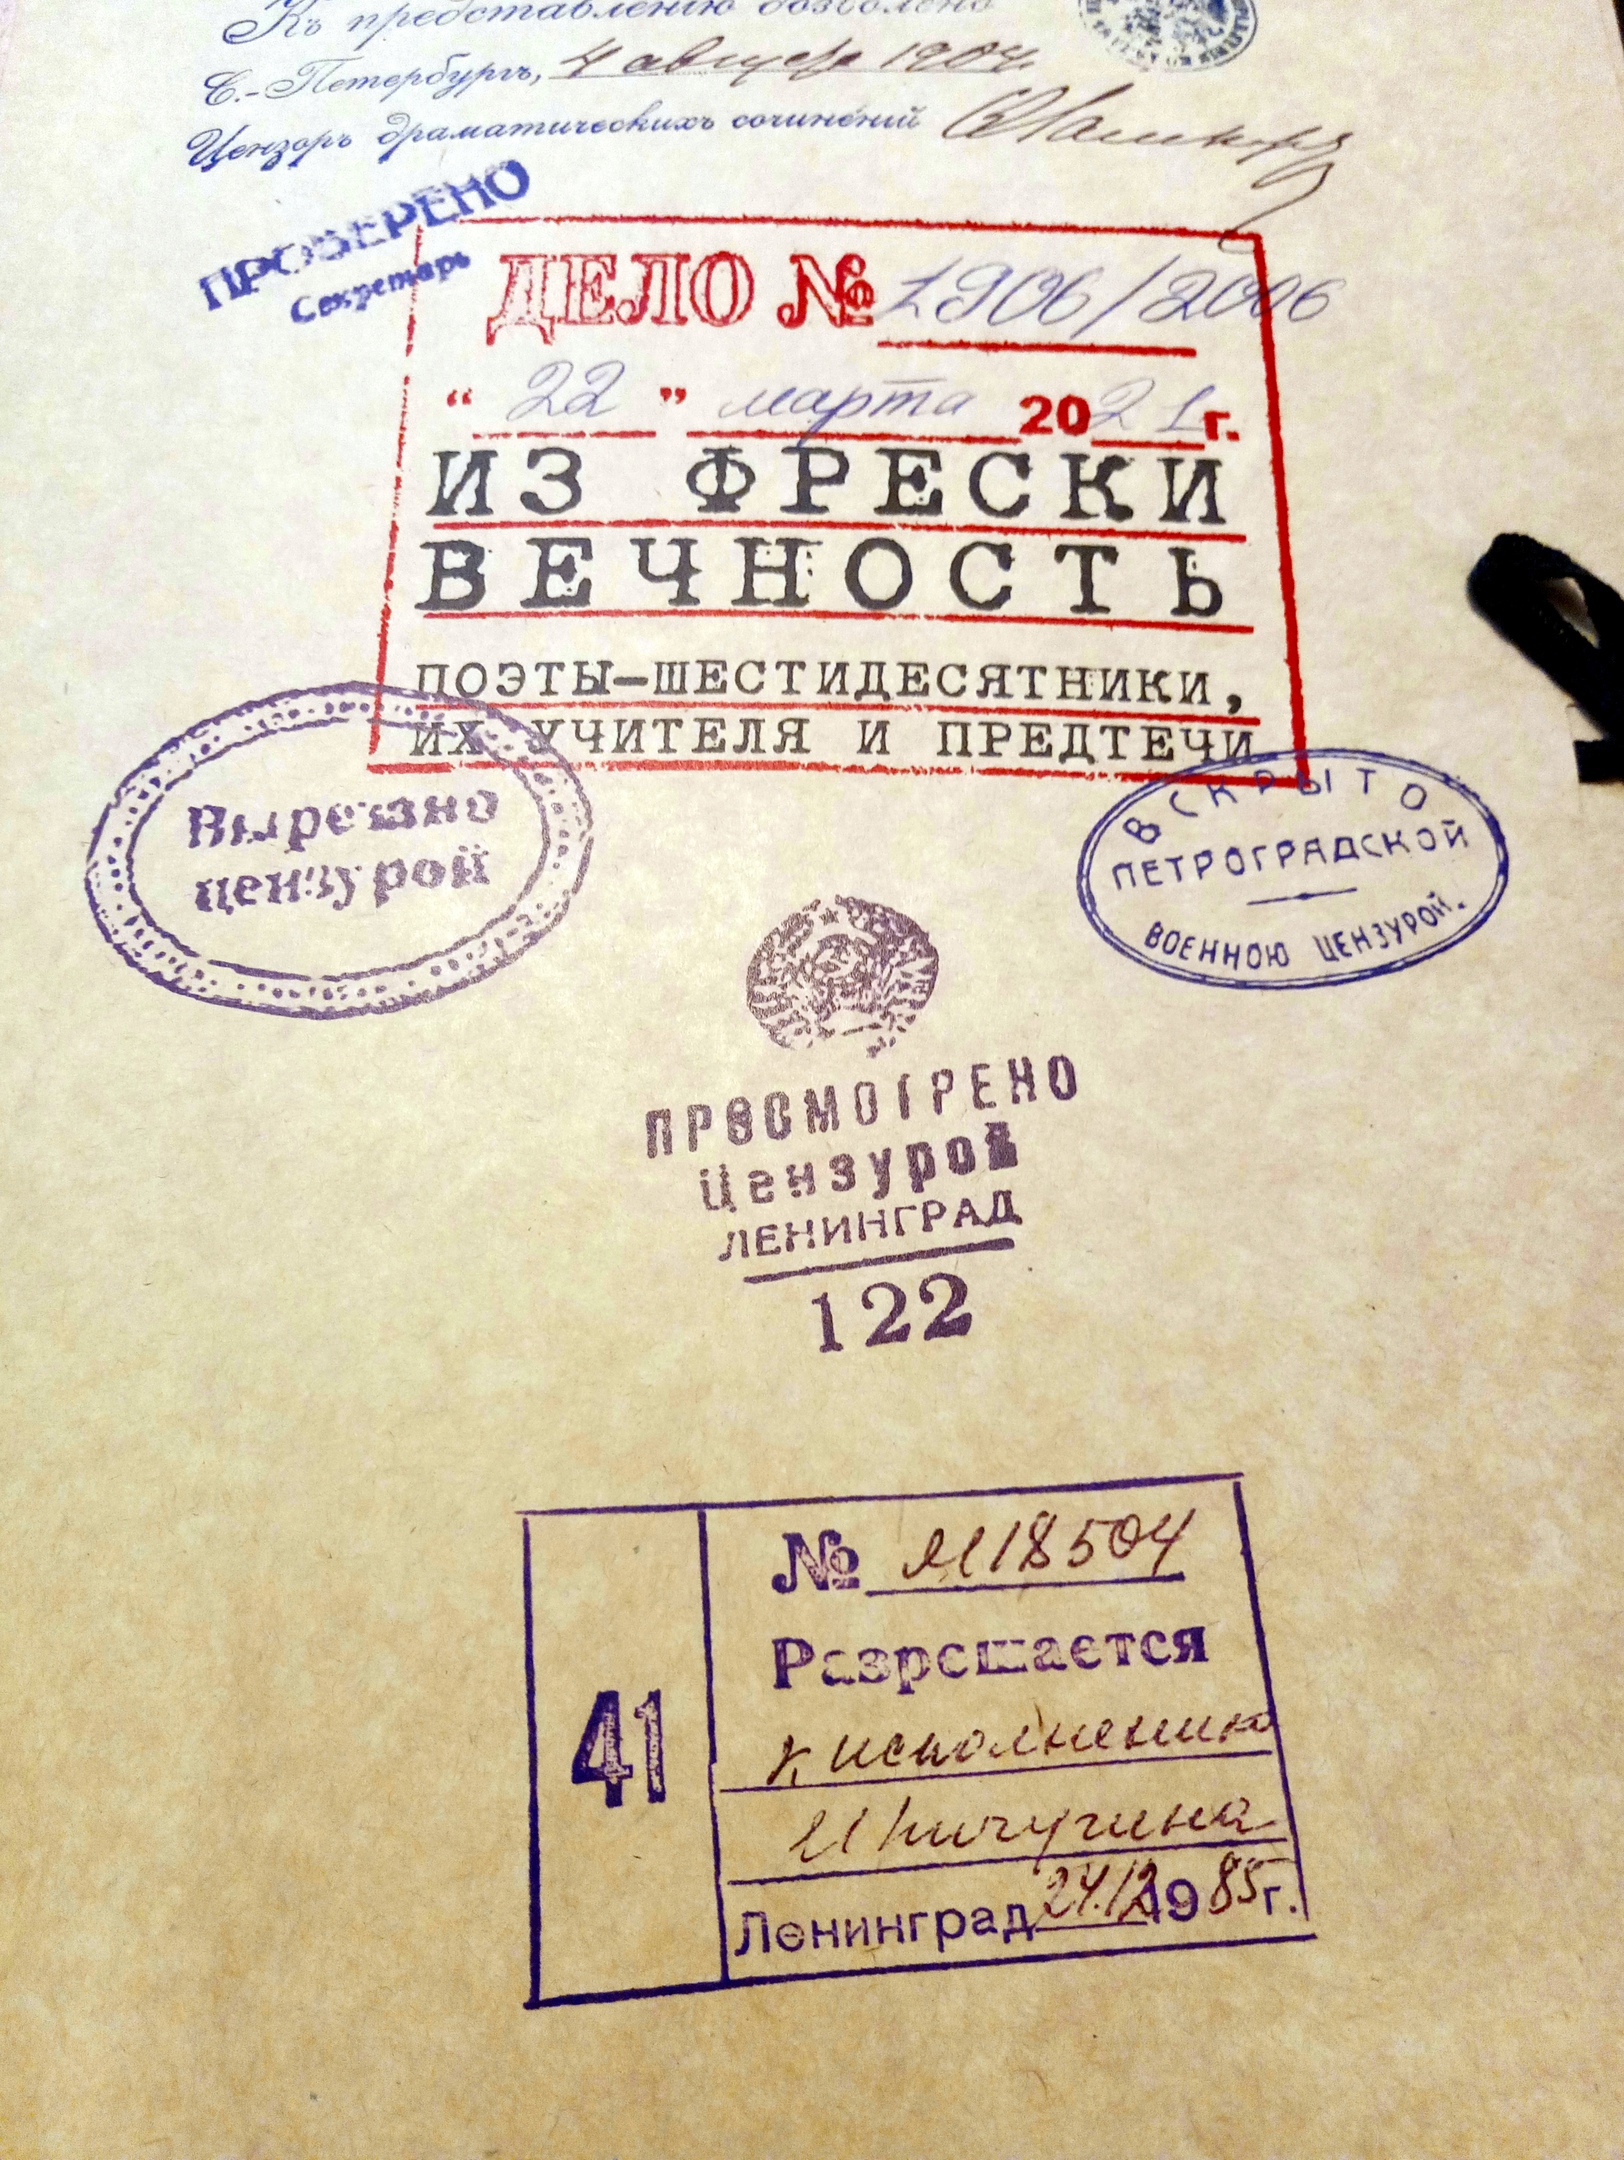 Къ представленію дозволено
С.-Петербургъ, 4 августа 1904 г.
Цензоръ драматическихъ сочиненій
ПРОВЕРЕНО
Секретарь
ДЕЛО № 1906/2006
" 22 " марта 2021 г.
ИЗ ФРЕСКИ
ВЕЧНОСТЬ
ПОЭТЫ—ШЕСТИДЕСЯТНИКИ,
ИХ УЧИТЕЛЯ И ПРЕДТЕЧИ
Вырезано
цензурой
ВСКРЫТО
ПЕТРОГРАДСКОЙ
ВОЕННОЮ ЦЕНЗУРОЙ.
ПРОСМОТРЕНО
Цензурой
ЛЕНИНГРАД
122
41
№ М18504
Разрешается
к исполнению
И Пичугина
Ленинград 24.12 1985 г.